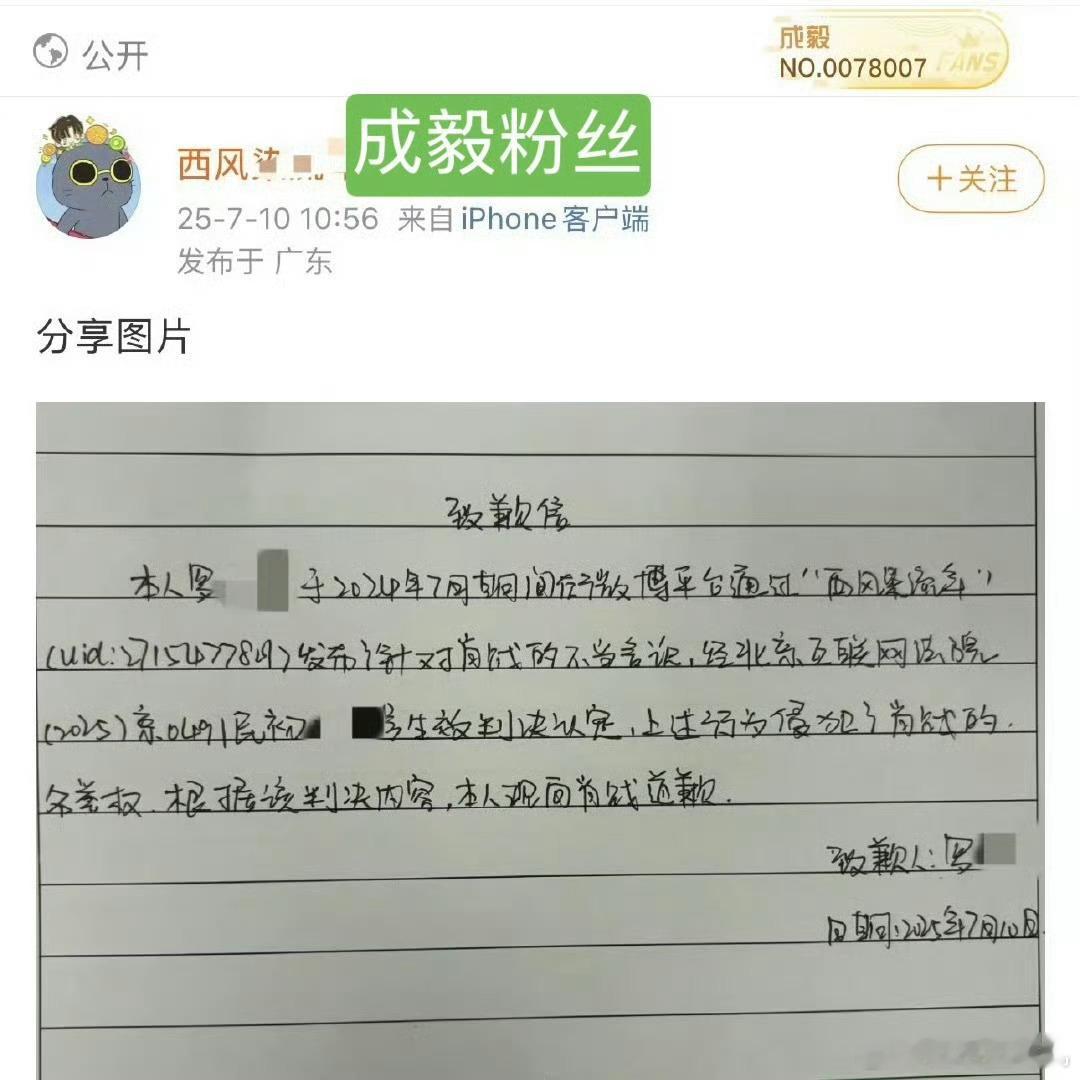 公开
成毅
NO.0078007
FANS
西风
成毅粉丝
+关注
25-7-10 10:56 来自 iPhone客户端
发布于 广东
分享图片
致歉信
本人罗 于2024年7月期间在微博平台通过“西风果流年”
(uid:2715477849)发布了针对肖战的不当言论,经北京互联网法院
(2025)京0491民初 号生效判决认定,上述行为侵犯了肖战的
名誉权.根据该判决内容,本人现向肖战道歉.
致歉人:罗
日期:2025年7月10日.